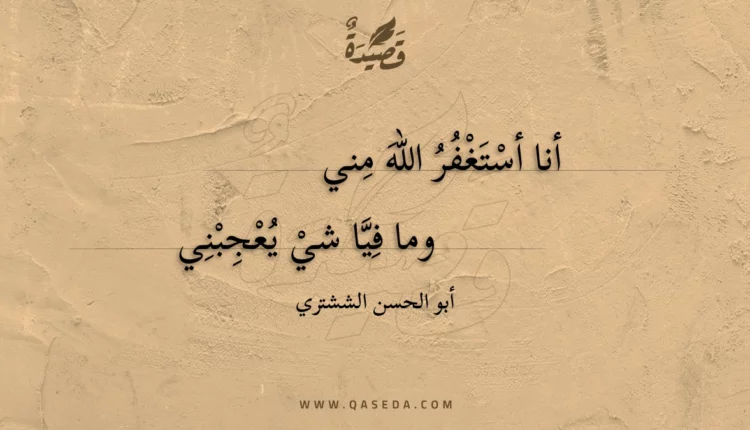 قَصِيْدَةٌ
أنا أسْتَغْفُرُ اللهَ مِني
وما فِيَّا شيْ يُعْجِبْنِي
أبو الحسن الششتري
WWW.QASEDA.COM